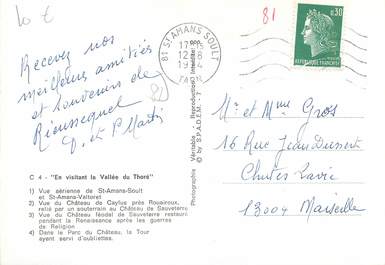 10 €
81
81 ST AMANS SOULT
17H15
12-8
1974
TARN
0,30
REPUBLIQUE FRANCAISE
Recevez nos
meilleurs amitiés
et souvenir de
Rieussequel
D. et P Martin
82
Mr et Mme Gros
16 Rue Jean Dussert
Chutes Lavie
13004 Marseille
C 4 - "En visitant la Vallée du Thoré"
1) Vue aérienne de St-Amans-Soult
et St-Amans-Valtoret
2) Vue du Château de Caylus près Rouairoux,
relié par un souterrain au Château de Sauveterre
3) Vue du Château féodal de Sauveterre restauré
pendant la Renaissance après les guerres
de Religion
4) Dans le Parc du Château, la Tour
ayent servi d'oubliettes.
Photographie Véritable - Reproduction Interdite
© by S.P.A.D.E.M. - 7